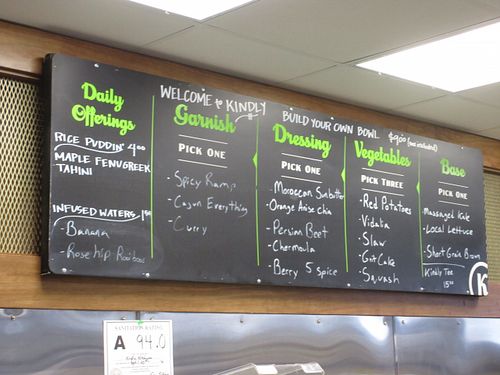 WELCOME to KINDLY
BUILD YOUR OWN BOWL $9.00 (tax included)
Daily
Offerings
RICE PUDDIN' 4.00
MAPLE FENUGREEK
TAHINI
INFUSED WATERS 1.50
- Banana
- Rosehip Rooibos
Garnish
PICK ONE
- Spicy Ramp
- Cajun Everything
- Curry
Dressing
PICK ONE
- Moroccan Sunbutter
- Orange Anise chia
- Persian Beet
- Chermoula
- Berry 5 spice
Vegetables
PICK THREE
- Red Potatoes
- Vidalia
- Slaw
- Grit Cake
- Squash
Base
PICK ONE
- Massaged Kale
- Local Lettuce
- Short Grain Brown
Kindly Tee
15.00
K
SANITATION RATING
A 94.0